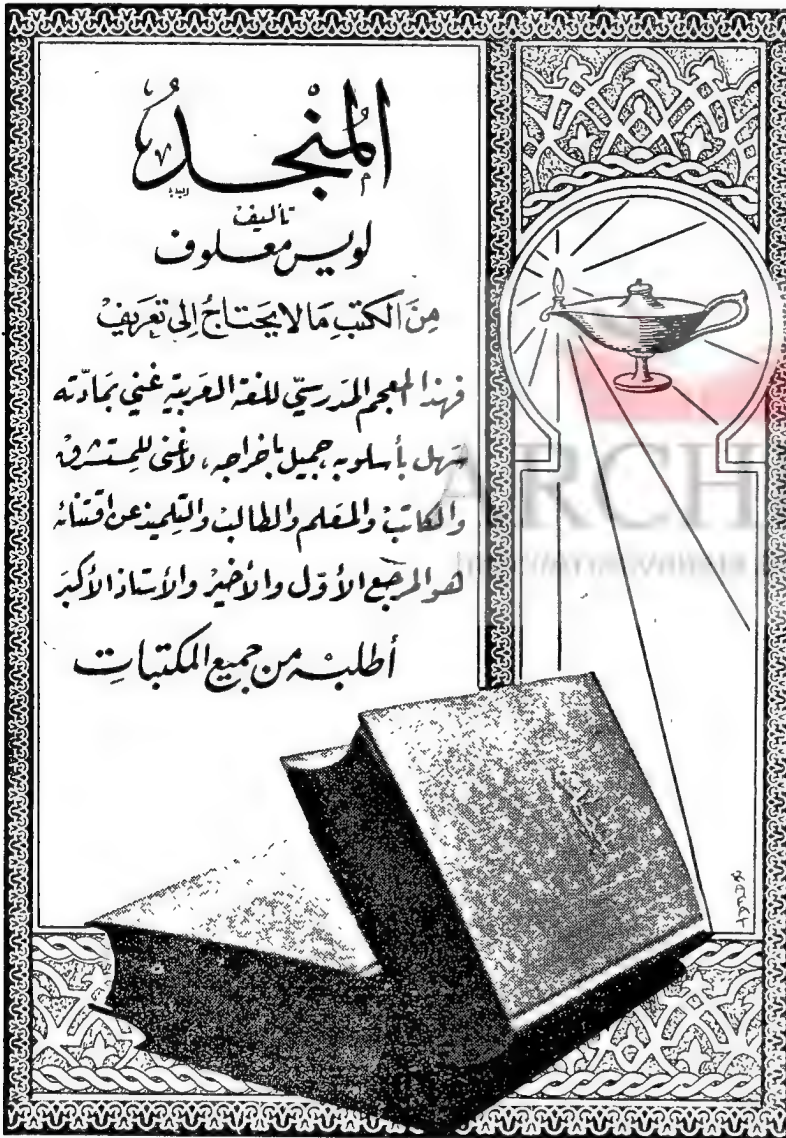 المُنْجدُ
تأليف
لويس معلوف
مِنَ الكتبِ مَا لا يحتاجُ إلى تعَريفْ
فهذا المعجم المدَرسيّ للغة العَربيّة غني بمَادّته
سَهل بأسلوبه جميل بإخراجه، لا غنى للمِستشرق
والكاتبْ والمعَلم والطالبْ والتِلميذ عن اقتنائه
هو المرجع الأوّل والأخيرْ والأستاذ الأكبرَ
أطلبه من جميع المكتباتِ
ARCH